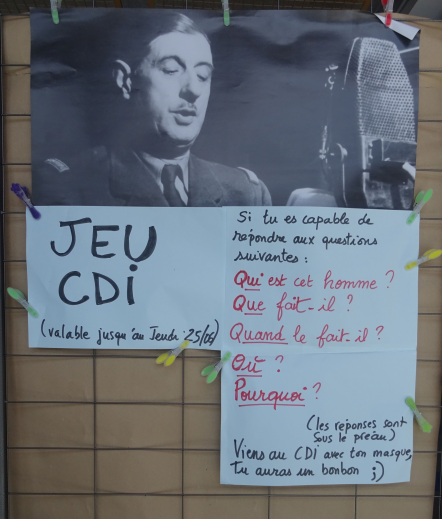 JEU
CDi
(valable jusqu'au Jeudi 25/06)
Si tu es capable de
répondre aux questions
suivantes :
Qui est cet homme ?
Que fait-il ?
Quand le fait-il ?
Où ?
Pourquoi ?
(les réponses sont
sous le préau)
Viens au CDI avec ton masque,
tu auras un bonbon ;)